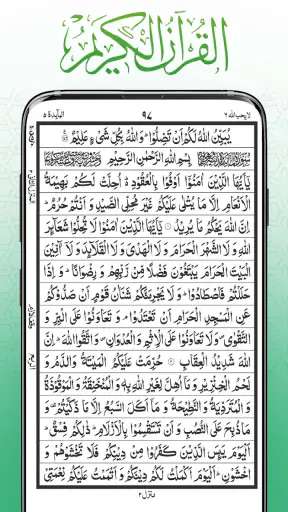 القرآن الكريم
لا يحب الله ٦
٩٧
المآىدة ٥
يُبَيِّنُ اللّٰهُ لَكُمْ اَنْ تَضِلُّوْا ؕ وَ اللّٰهُ بِكُلِّ شَیْءٍ عَلِيْمٌ
بِسْمِ اللّٰهِ الرَّحْمٰنِ الرَّحِيْمِ
يٰۤاَيُّهَا الَّذِيْنَ اٰمَنُوْۤا اَوْفُوْا بِالْعُقُوْدِ ؕ اُحِلَّتْ لَكُمْ بَهِيْمَةُ
الْاَنْعَامِ اِلَّا مَا يُتْلٰى عَلَيْكُمْ غَيْرَ مُحِلِّی الصَّيْدِ وَ اَنْتُمْ حُرُمٌ ؕ
اِنَّ اللّٰهَ يَحْكُمُ مَا يُرِيْدُ يٰۤاَيُّهَا الَّذِيْنَ اٰمَنُوْا لَا تُحِلُّوْا شَعَآىِٕرَ
اللّٰهِ وَ لَا الشَّهْرَ الْحَرَامَ وَ لَا الْهَدْیَ وَ لَا الْقَلَآىِٕدَ وَ لَاۤ آٰمِّيْنَ
الْبَيْتَ الْحَرَامَ يَبْتَغُوْنَ فَضْلًا مِّنْ رَّبِّهِمْ وَ رِضْوَانًا ؕ وَ اِذَا
حَلَلْتُمْ فَاصْطَادُوْا ؕ وَ لَا يَجْرِمَنَّكُمْ شَنَاٰنُ قَوْمٍ اَنْ صَدُّوْكُمْ
عَنِ الْمَسْجِدِ الْحَرَامِ اَنْ تَعْتَدُوْا ۘ وَ تَعَاوَنُوْا عَلَى الْبِرِّ وَ
التَّقْوٰى ۪ وَ لَا تَعَاوَنُوْا عَلَى الْاِثْمِ وَ الْعُدْوَانِ ۪ وَ اتَّقُوا اللّٰهَ ؕ اِنَّ
اللّٰهَ شَدِيْدُ الْعِقَابِ حُرِّمَتْ عَلَيْكُمُ الْمَيْتَةُ وَ الدَّمُ وَ
لَحْمُ الْخِنْزِيْرِ وَ مَاۤ اُهِلَّ لِغَيْرِ اللّٰهِ بِهٖ وَ الْمُنْخَنِقَةُ وَ الْمَوْقُوْذَةُ
وَ الْمُتَرَدِّيَةُ وَ النَّطِيْحَةُ وَ مَاۤ اَكَلَ السَّبُعُ اِلَّا مَا ذَكَّيْتُمْ ۫ وَ
مَا ذُبِحَ عَلَى النُّصُبِ وَ اَنْ تَسْتَقْسِمُوْا بِالْاَزْلَامِ ؕ ذٰلِكُمْ فِسْقٌ ؕ
اَلْيَوْمَ يَىِٕسَ الَّذِيْنَ كَفَرُوْا مِنْ دِيْنِكُمْ فَلَا تَخْشَوْهُمْ وَ
اخْشَوْنِ ؕ اَلْيَوْمَ اَكْمَلْتُ لَكُمْ دِيْنَكُمْ وَ اَتْمَمْتُ عَلَيْكُمْ نِعْمَتِیْ
منزل ٢